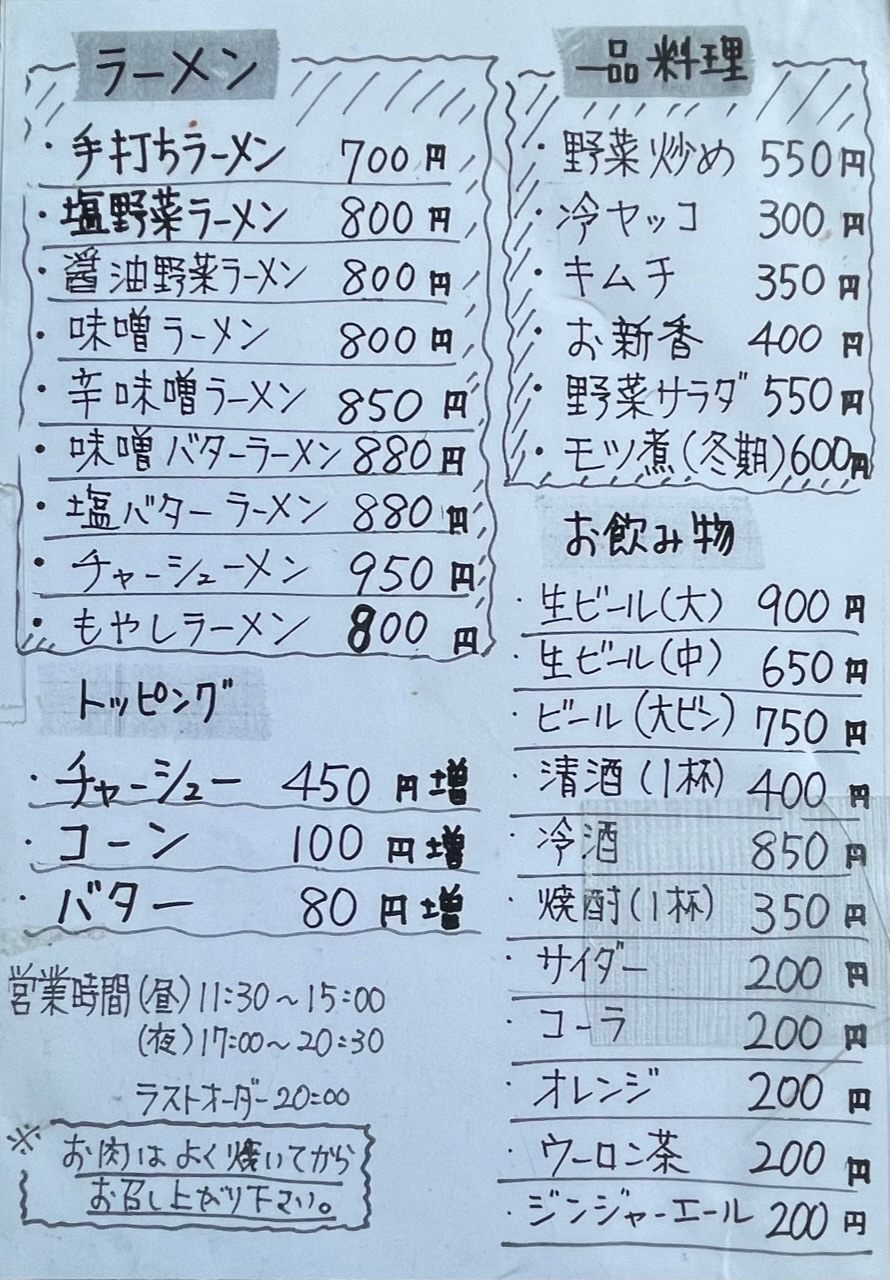 ラーメン
・手打ちラーメン 700円
・塩野菜ラーメン 800円
・醤油野菜ラーメン 800円
・味噌ラーメン 800円
・辛味噌ラーメン 850円
・味噌バターラーメン 880円
・塩バターラーメン 880円
・チャーシューメン 950円
・もやしラーメン 800円
トッピング
・チャーシュー 450円増
・コーン 100円増
・バター 80円増
営業時間(昼)11:30~15:00
(夜)17:00~20:30
ラストオーダー20:00
※お肉はよく焼いてから
お召し上がり下さい。
一品料理
・野菜炒め 550円
・冷ヤッコ 300円
・キムチ 350円
・お新香 400円
・野菜サラダ 550円
・モツ煮(冬期)600円
お飲み物
・生ビール(大) 900円
・生ビール(中) 650円
・ビール(大ビン) 750円
・清酒(1杯) 400円
・冷酒 850円
・焼酎(1杯) 350円
・サイダー 200円
・コーラ 200円
・オレンジ 200円
・ウーロン茶 200円
・ジンジャーエール 200円